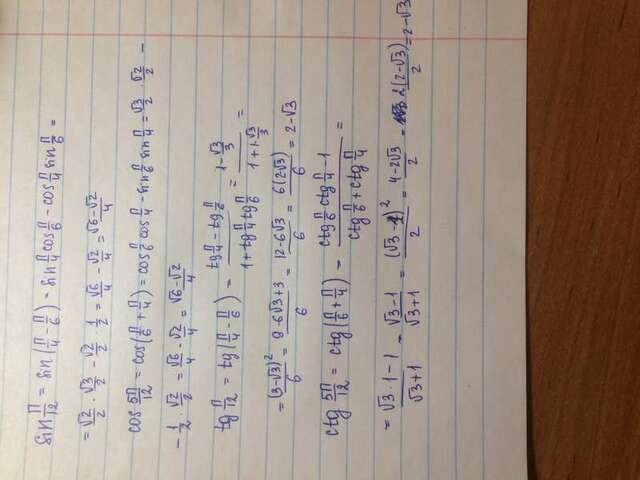 sin π/12 = sin(π/4 - π/6) = sin π/4 cos π/6 - cos π/4 sin π/6 =
= √2/2 · √3/2 - √2/2 · 1/2 = √6/4 - √2/4 = √6-√2/4
cos 5π/12 = cos(π/6 + π/4) = cos π/6 cos π/4 - sin π/6 sin π/4 = √3/2 · √2/2 -
- 1/2 · √2/2 = √6/4 - √2/4 = √6-√2/4
tg π/12 = tg(π/4 - π/6) = tg π/4 - tg π/6 / 1 + tg π/4 tg π/6 = 1 - √3/3 / 1 + 1·√3/3 =
= (3-√3)²/6 = 9-6√3+3/6 = 12-6√3/6 = 6(2-√3)/6 = 2-√3
ctg 5π/12 = ctg(π/6 + π/4) = ctg π/6 ctg π/4 - 1 / ctg π/6 + ctg π/4 =
= √3 · 1 - 1 / √3+1 = √3-1/√3+1 = (√3-1)²/2 = 4-2√3/2 = 2(2-√3)/2 = 2-√3